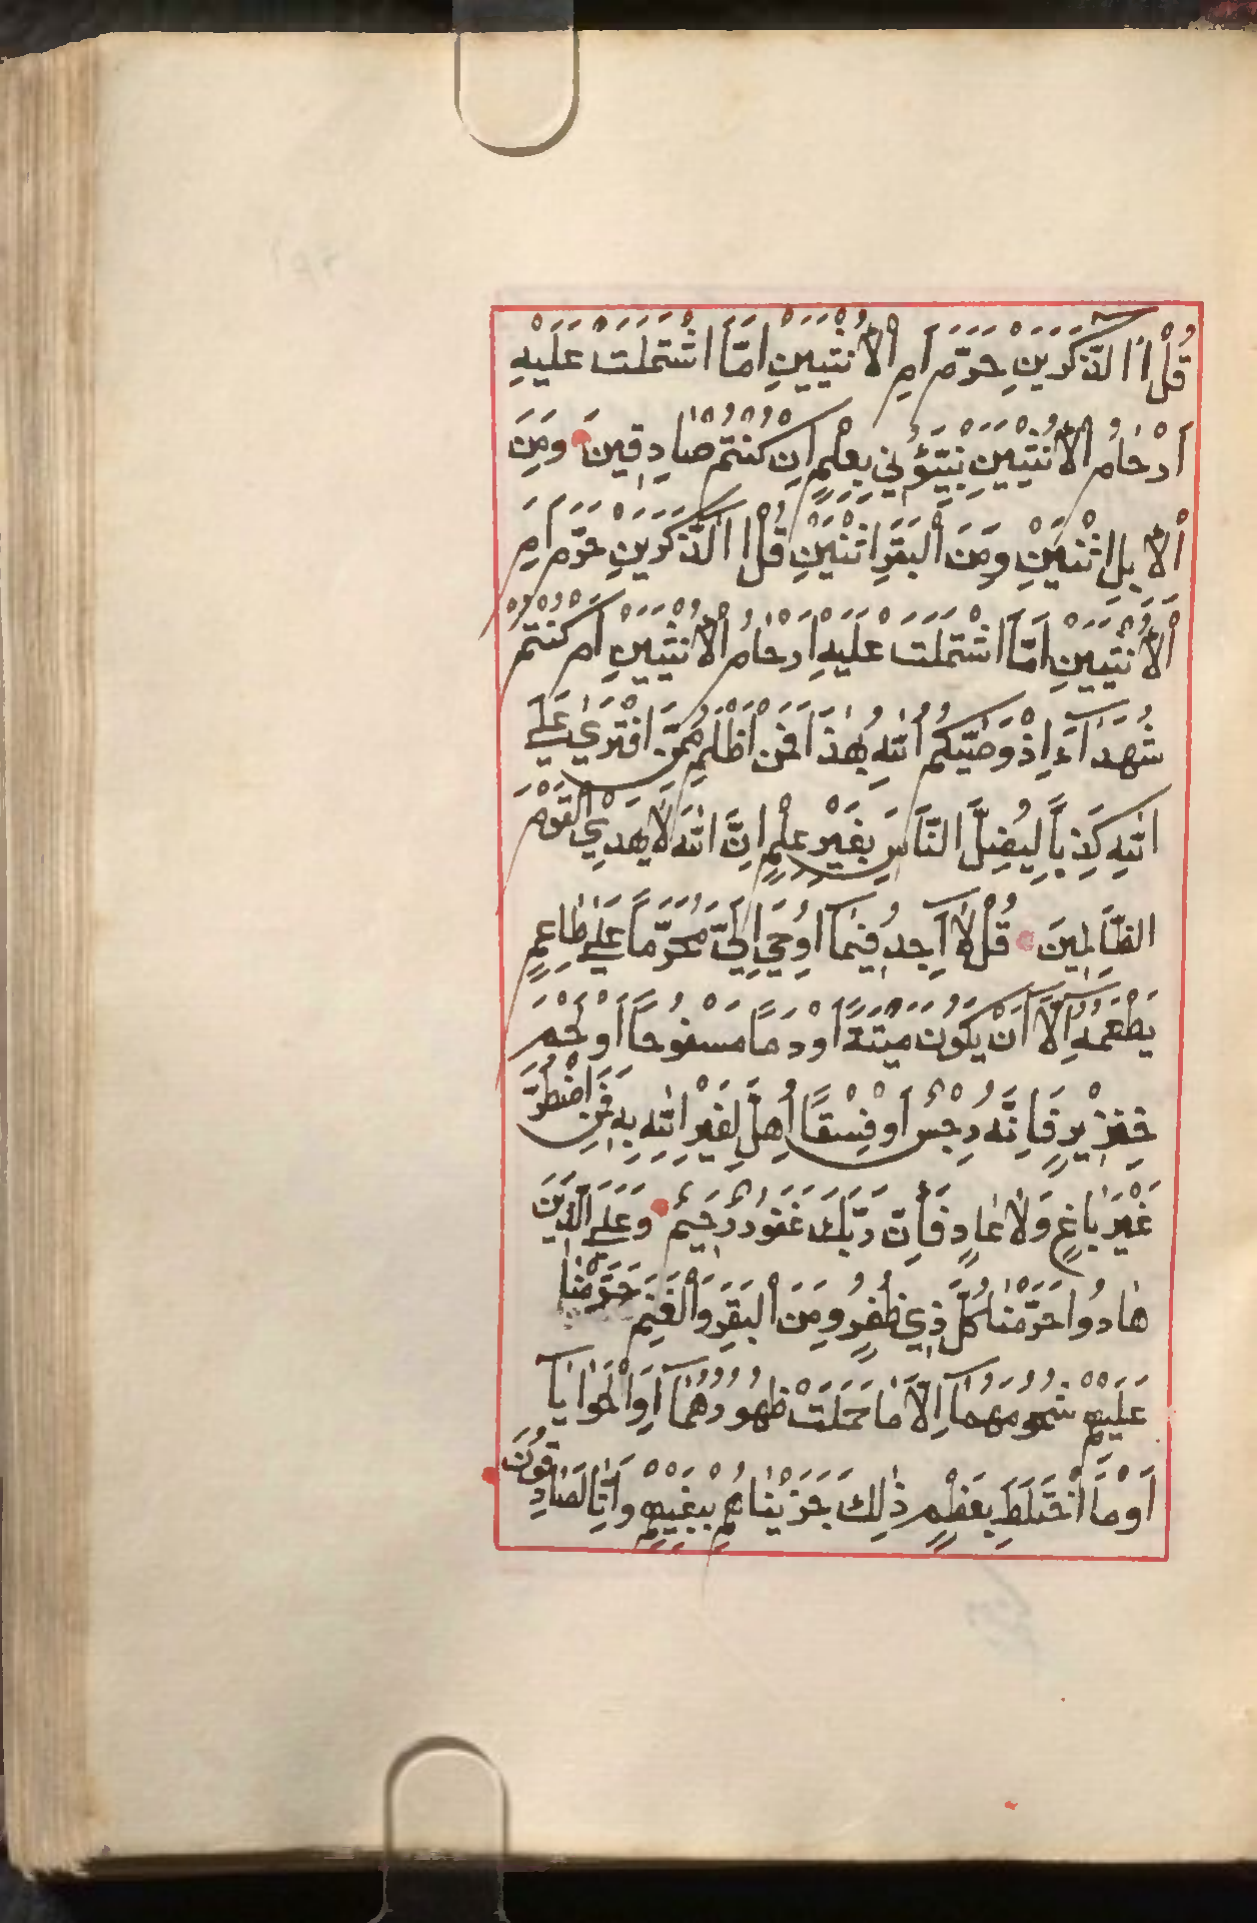 قُلْ اٰۤالذَّكَرَيْنِ حَرَّمَ اَمِ الْاُنْثَيَيْنِ اَمَّا اشْتَمَلَتْ عَلَيْهِ
اَرْحَامُ الْاُنْثَيَيْنِ نَبِّئُوْنِيْ بِعِلْمٍ اِنْ كُنْتُمْ صَادِقِيْنَ وَمِنَ
الْاِبِلِ اثْنَيْنِ وَمِنَ الْبَقَرِ اثْنَيْنِ قُلْ اٰلذَّكَرَيْنِ حَرَّمَ اَمِ
الْاُنْثَيَيْنِ اَمَّا اشْتَمَلَتْ عَلَيْهِ اَرْحَامُ الْاُنْثَيَيْنِ اَمْ كُنْتُمْ
شُهَدَآءَ اِذْ وَصّٰيكُمُ اللّٰهُ بِهٰذَا فَمَنْ اَظْلَمُ مِمَّنِ افْتَرٰي عَلَي
اللّٰهِ كَذِبًا لِيُضِلَّ النَّاسَ بِغَيْرِ عِلْمٍ اِنَّ اللّٰهَ لَا يَهْدِي الْقَوْمَ
الظَّالِمِيْنَ قُلْ لَّا اَجِدُ فِيْمَآ اُوْحِيَ اِلَيَّ مُحَرَّمًا عَلٰي طَاعِمٍ
يَطْعَمُهُٓ اِلَّآ اَنْ يَكُوْنَ مَيْتَةً اَوْ دَمًا مَسْفُوْحًا اَوْ لَحْمَ
خِنْزِيْرٍ فَاِنَّهُ رِجْسٌ اَوْ فِسْقًا اُهِلَّ لِغَيْرِ اللّٰهِ بِهِ فَمَنِ اضْطُرَّ
غَيْرَ بَاغٍ وَلَا عَادٍ فَاِنَّ رَبَّكَ غَفُوْرٌ رَّحِيْمٌ وَعَلَي الَّذِيْنَ
هَادُوا حَرَّمْنَا كُلَّ ذِيْ ظُفُرٍ وَمِنَ الْبَقَرِ وَالْغَنَمِ حَرَّمْنَا
عَلَيْهِمْ شُحُوْمَهُمَآ اِلَّا مَا حَمَلَتْ ظُهُوْرُهُمَآ اَوِ الْحَوَايَآ
اَوْ مَا اخْتَلَطَ بِعَظْمٍ ذٰلِكَ جَزَيْنَاهُمْ بِبَغْيِهِمْ وَاِنَّا لَصَادِقُوْنَ